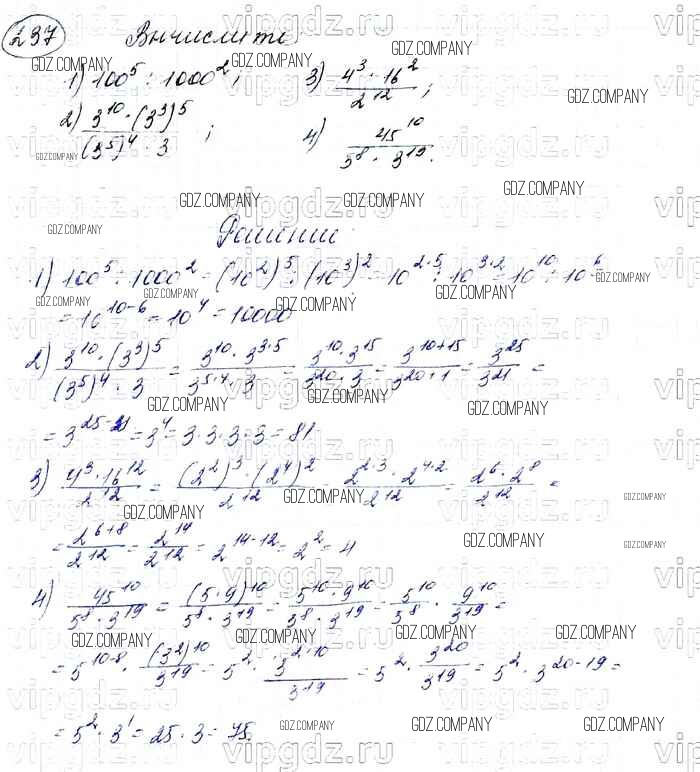 237 Вычислите
1) 100⁵ : 1000²; 3) 4³ · 16² / 2¹²;
2) 3¹⁰ · (3³)⁵ / (3⁵)⁴ · 3 ; 4) 45¹⁰ / 5⁸ · 3¹⁹.
Решение
1) 100⁵ : 1000² = (10²)⁵ : (10³)² = 10²·⁵ : 10³·² = 10¹⁰ : 10⁶
= 10¹⁰⁻⁶ = 10⁴ = 10000
2) 3¹⁰ · (3³)⁵ / (3⁵)⁴ · 3 = 3¹⁰ · 3³·⁵ / 3⁵·⁴ · 3 = 3¹⁰ · 3¹⁵ / 3²⁰ · 3 = 3¹⁰⁺¹⁵ / 3²⁰⁺¹ = 3²⁵ / 3²¹ =
= 3²⁵⁻²¹ = 3⁴ = 3·3·3·3 = 81
3) 4³ · 16¹² / 2¹² = (2²)³ · (2⁴)² / 2¹² = 2²·³ · 2⁴·² / 2¹² = 2⁶ · 2⁸ / 2¹² =
= 2⁶⁺⁸ / 2¹² = 2¹⁴ / 2¹² = 2¹⁴⁻¹² = 2² = 4
4) 45¹⁰ / 5⁸ · 3¹⁹ = (5·9)¹⁰ / 5⁸ · 3¹⁹ = 5¹⁰ · 9¹⁰ / 5⁸ · 3¹⁹ = 5¹⁰ / 5⁸ · 9¹⁰ / 3¹⁹ =
= 5¹⁰⁻⁸ · (3²)¹⁰ / 3¹⁹ = 5² · 3²·¹⁰ / 3¹⁹ = 5² · 3²⁰ / 3¹⁹ = 5² · 3²⁰⁻¹⁹ =
= 5² · 3¹ = 25 · 3 = 75.
GDZ.COMPANY
vipgdz.ru